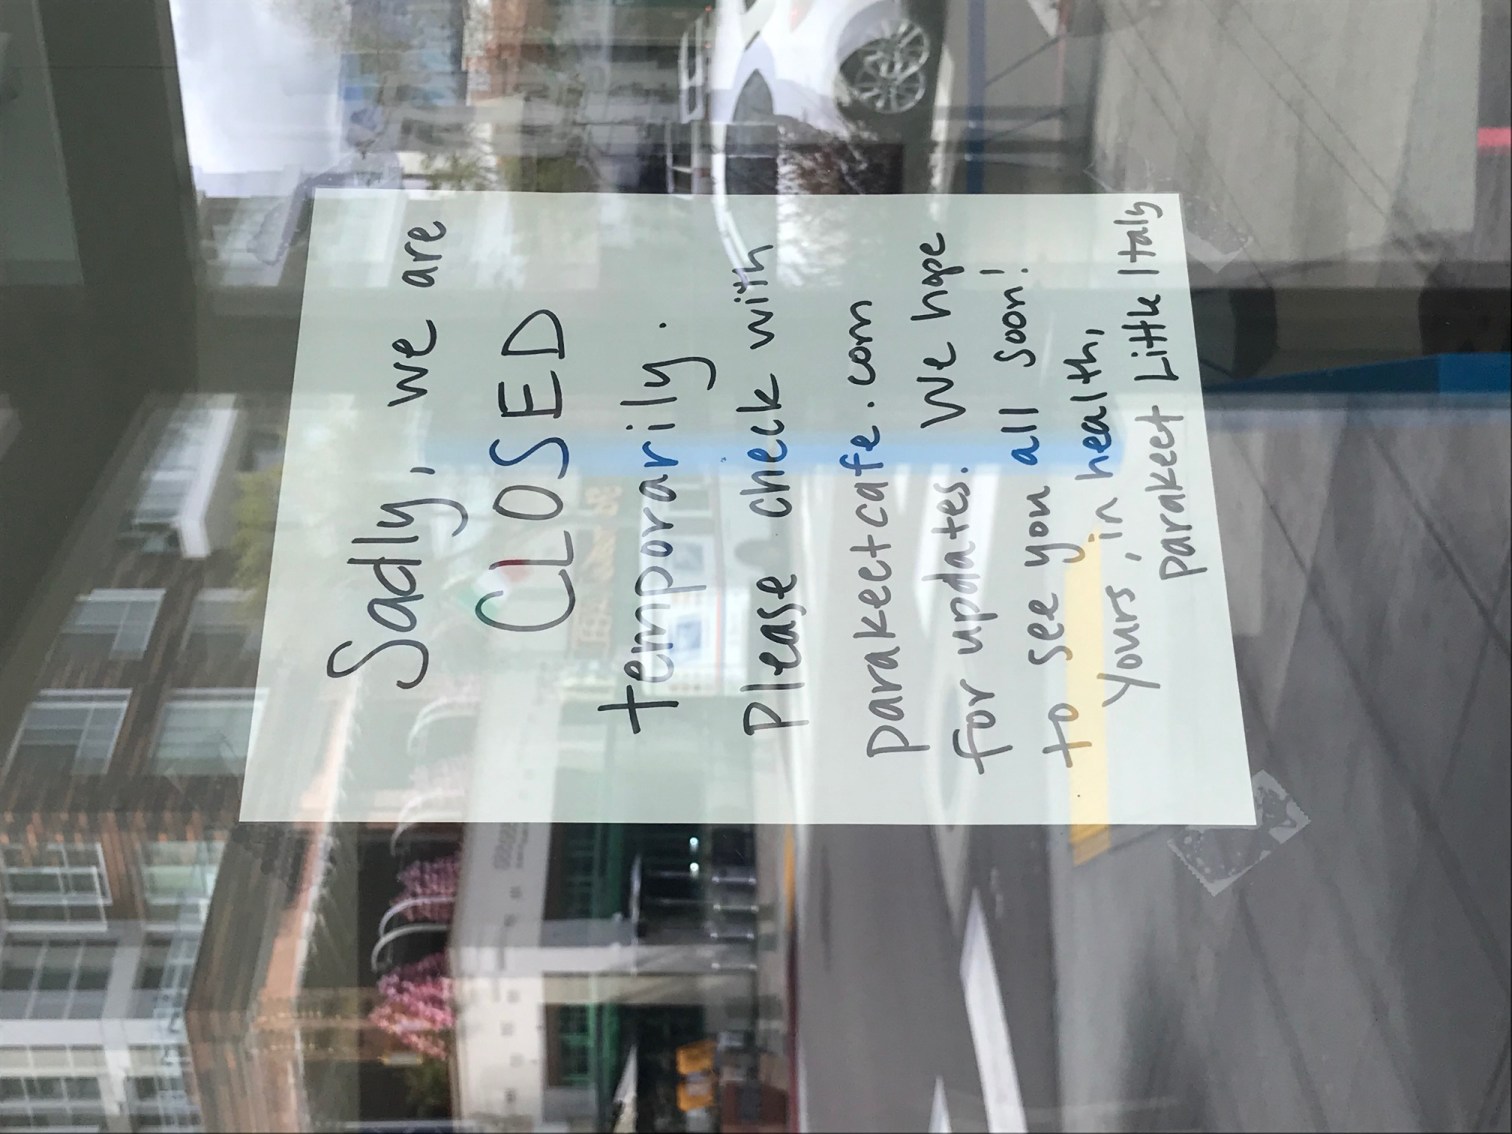 Sadly, we are
CLOSED
temporarily.
Please check with
parakeetcafe.com
for updates. We hope
to see you all soon!
Yours, in health,
parakeet Little Italy